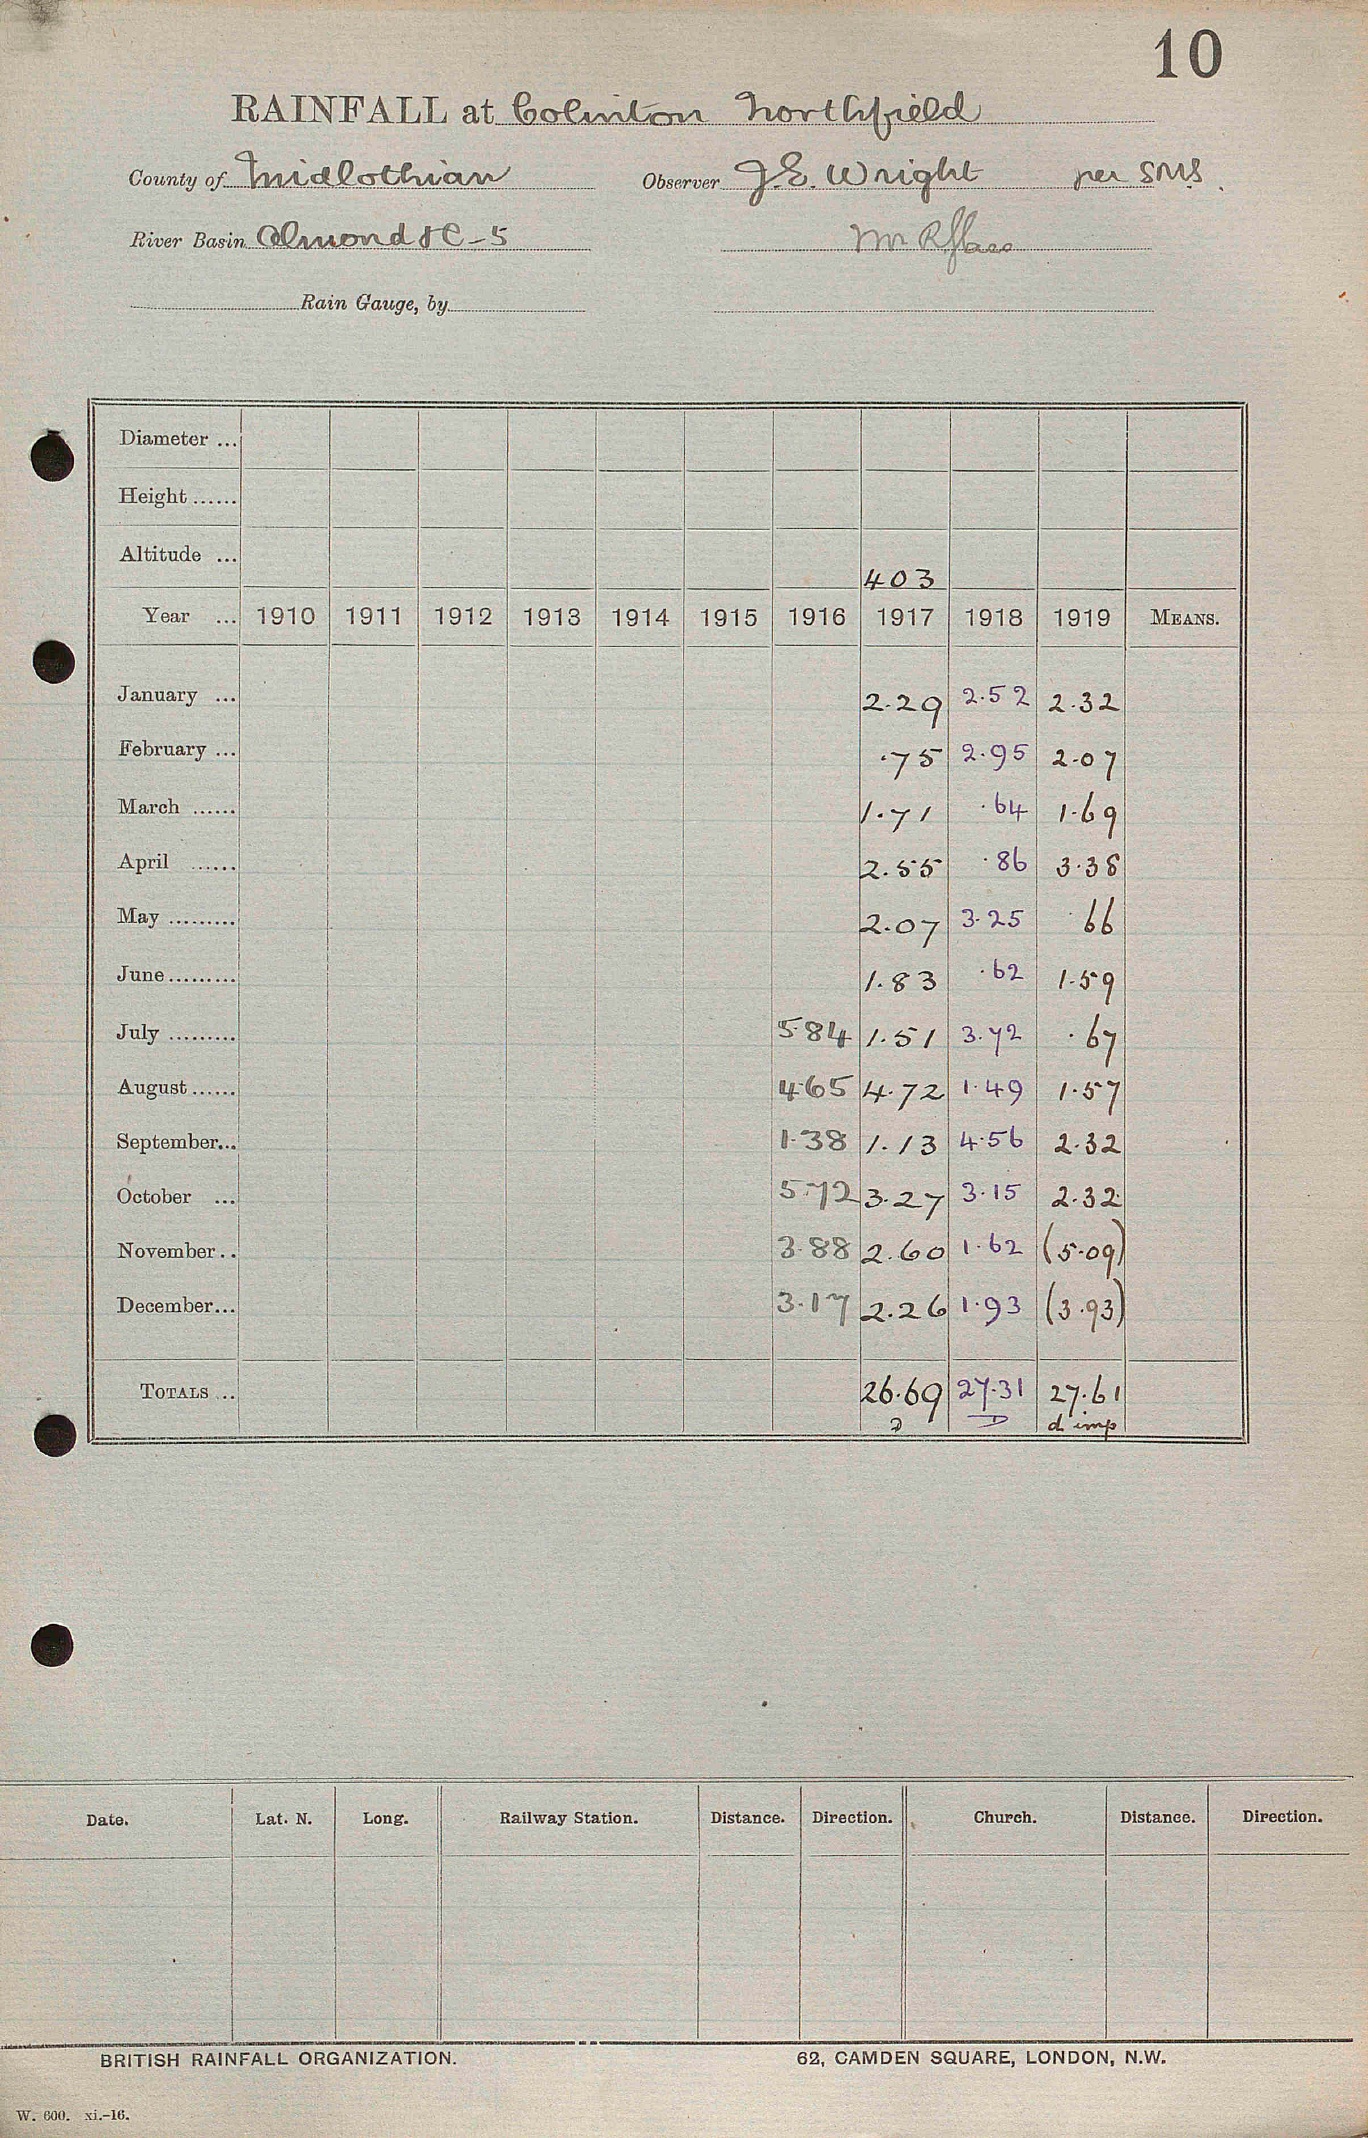 10
RAINFALL at Colinton Northfield
County of Midlothian Observer J.E. Wright per SMS.
River Basin Almond &C-5 Mr R Glass
Rain Gauge, by
Diameter ...
Height ......
Altitude ... 403
Year ... 1910 1911 1912 1913 1914 1915 1916 1917 1918 1919 MEANS.
January ... 2.29 2.52 2.32
February ... .75 2.95 2.07
March ...... 1.71 .64 1.69
April ...... 2.55 .86 3.38
May ......... 2.07 3.25 .66
June ......... 1.83 .62 1.59
July ......... 5.84 1.51 3.72 .67
August ...... 4.65 4.72 1.49 1.57
September... 1.38 1.13 4.56 2.32
October ... 5.72 3.27 3.15 2.32
November .. 3.88 2.60 1.62 (5.09)
December... 3.17 2.26 1.93 (3.93)
TOTALS ... 26.69 27.31 27.61
D D d imp
Date. Lat. N. Long. Railway Station. Distance. Direction. Church. Distance. Direction.
BRITISH RAINFALL ORGANIZATION. 62, CAMDEN SQUARE, LONDON, N.W.
W. 600. xi.-16.